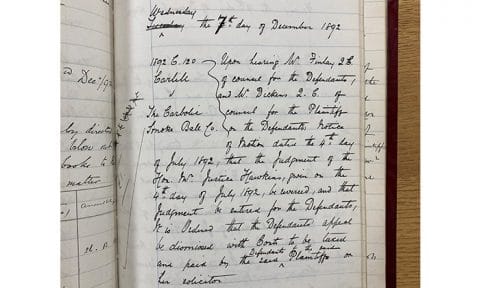 Wednesday
Tuesday the 7th day of December 1892
1892 C. 120
Carlill
v
The Carbolic
Smoke Ball Co.
Upon hearing Mr Finlay Q.C.
of counsel for the Defendants,
and Mr Dickens Q.C. of
counsel for the Plaintiff
on the Defendants Notice
of Motion dated the 4th day
of July 1892, that the Judgment of the
Hon. Mr Justice Hawkins, given on the
4th day of July 1892, be reversed, and that
Judgment be entered for the Defendants,
It is Ordered that the Defendants appeal
be dismissed with Costs to be taxed
and paid by the said Defendants to the said Plaintiffs or
her solicitor
ed Dec 7/92
by direc
below
books to
matter